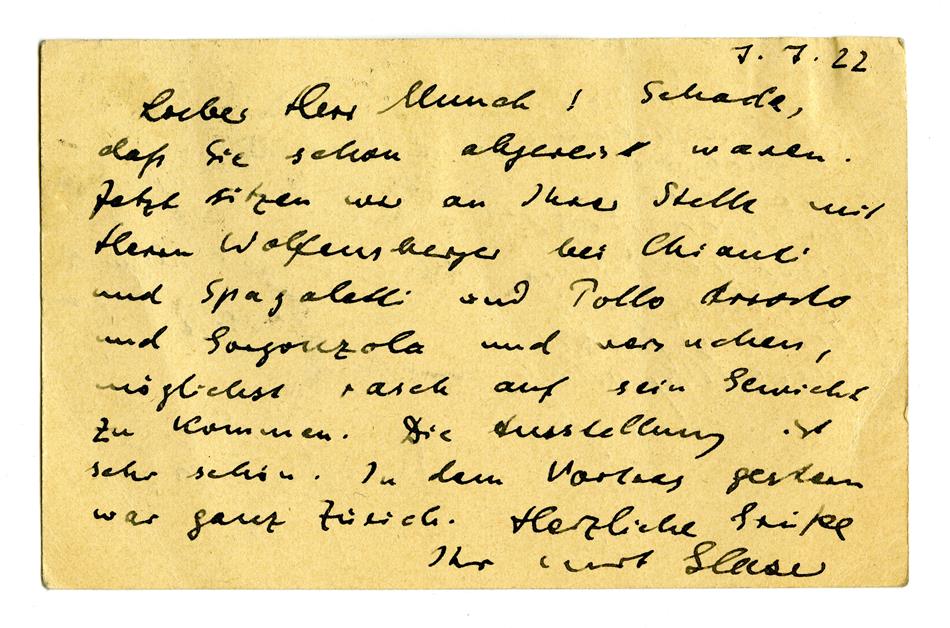 7. 7. 22
Lieber Herr Munch! Schade,
daß Sie schon abgereist waren.
Jetzt sitzen wir an Ihrer Stelle mit
Herrn Wolfensberger bei Chianti
und Spagaletti und Pollo Arrosto
und Gorgonzola und versuchen,
möglichst rasch auf sein Gewicht
zu kommen. Die Ausstellung ist
sehr schön. In dem Vortrag gestern
war ganz Zürich. Herzliche Grüße
Ihr Curt Glaser